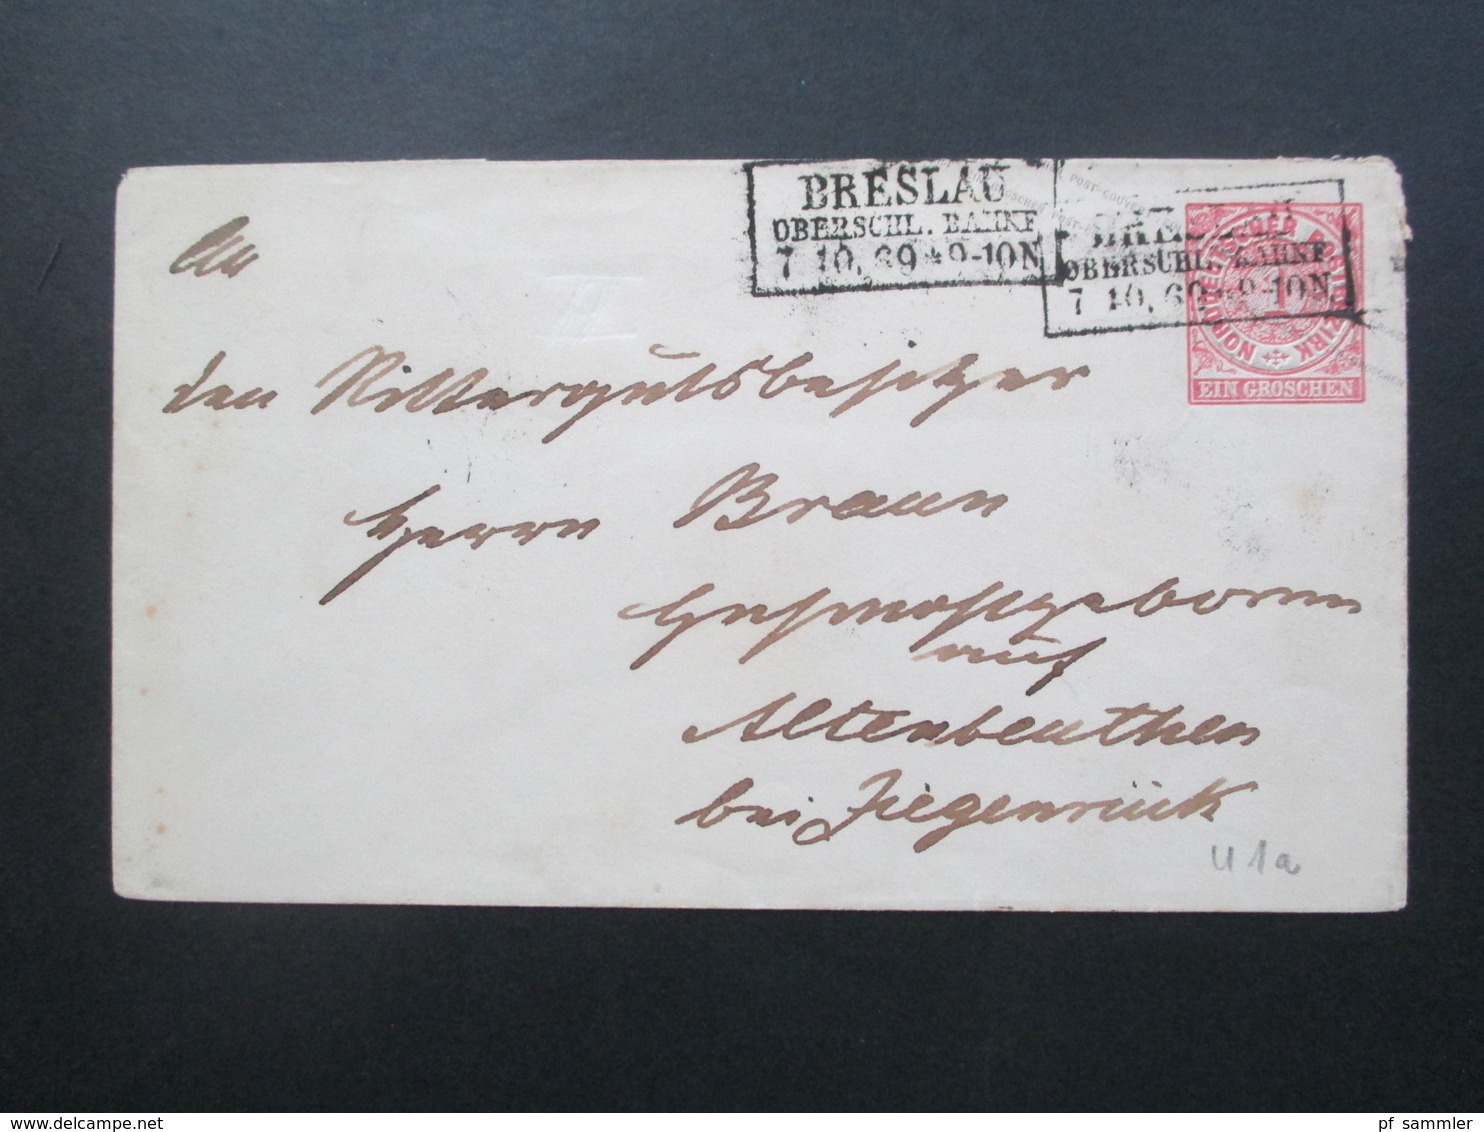 BRESLAU
OBERSCHL. BAHNF.
7 10. 69 * 9-10N
BRESLAU
OBERSCHL. BAHNF.
7 10. 69 * 9-10N
NORDDEUTSCHER POSTBEZIRK
1
EIN GROSCHEN
An
den Rittergutsbesitzer
Herrn Braun
auf
Altenbeuthen
bei Ziegenrück
U 1a
pf_sammler